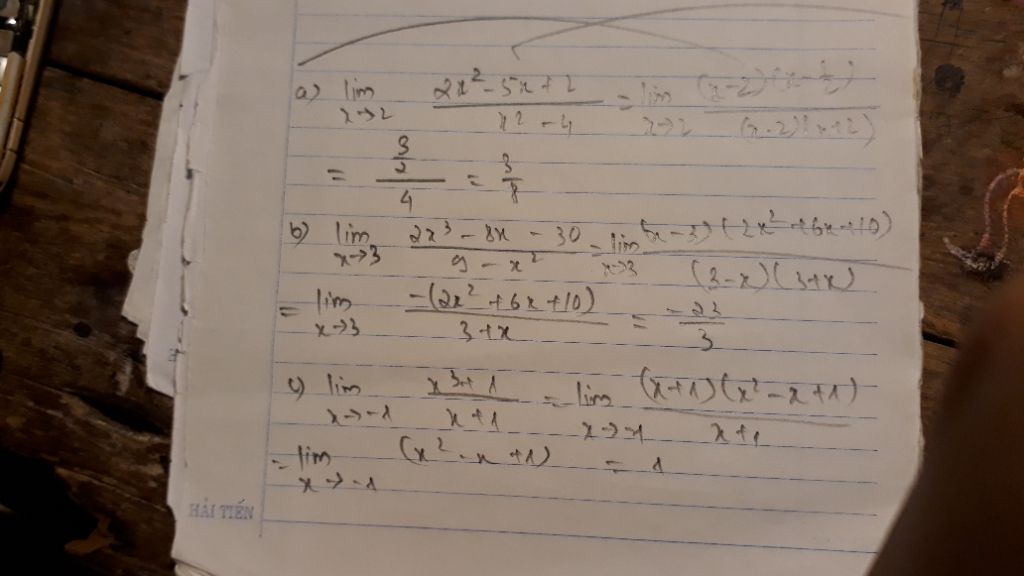 a) lim x→2 (2x² - 5x + 2)/(x² - 4) = lim x→2 ((x-2)(x-1/2))/((x-2)(x+2))
= (3/2)/4 = 3/8
b) lim x→3 (2x³ - 8x - 30)/(9 - x²) = lim x→3 ((x-3)(2x² + 6x + 10))/((3-x)(3+x))
= lim x→3 (-(2x² + 6x + 10))/(3+x) = (-23)/3
c) lim x→-1 (x³ + 1)/(x + 1) = lim x→-1 ((x+1)(x² - x + 1))/(x+1)
= lim x→-1 (x² - x + 1) = 1
HẢI TIẾN